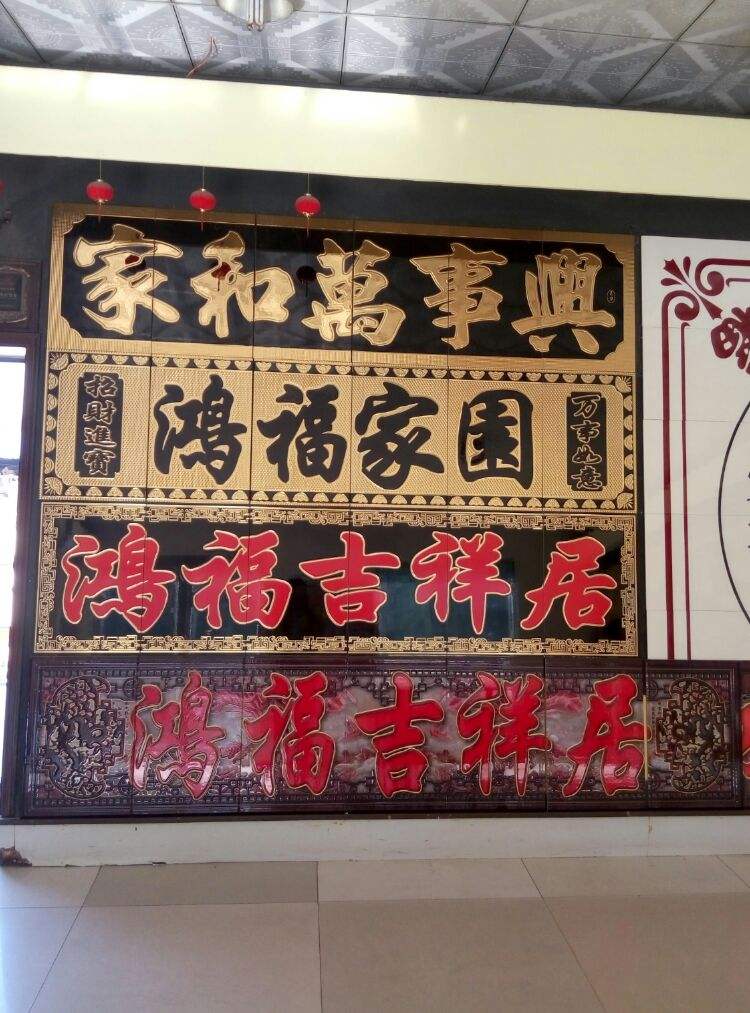 家和萬事興
招財進寳
鴻福家園
万事如意
鴻福吉祥居
鴻福吉祥居